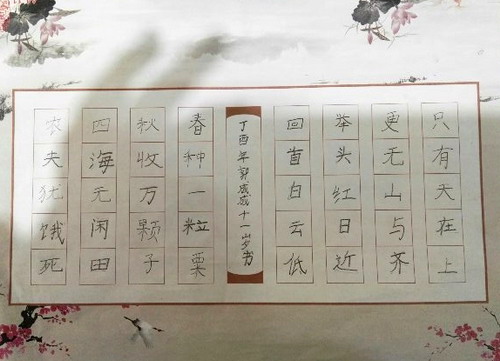 只有天在上
更无山与齐
举头红日近
回首白云低
丁酉年十一书
春种一粒粟
秋收万颗子
四海无闲田
农夫犹饿死